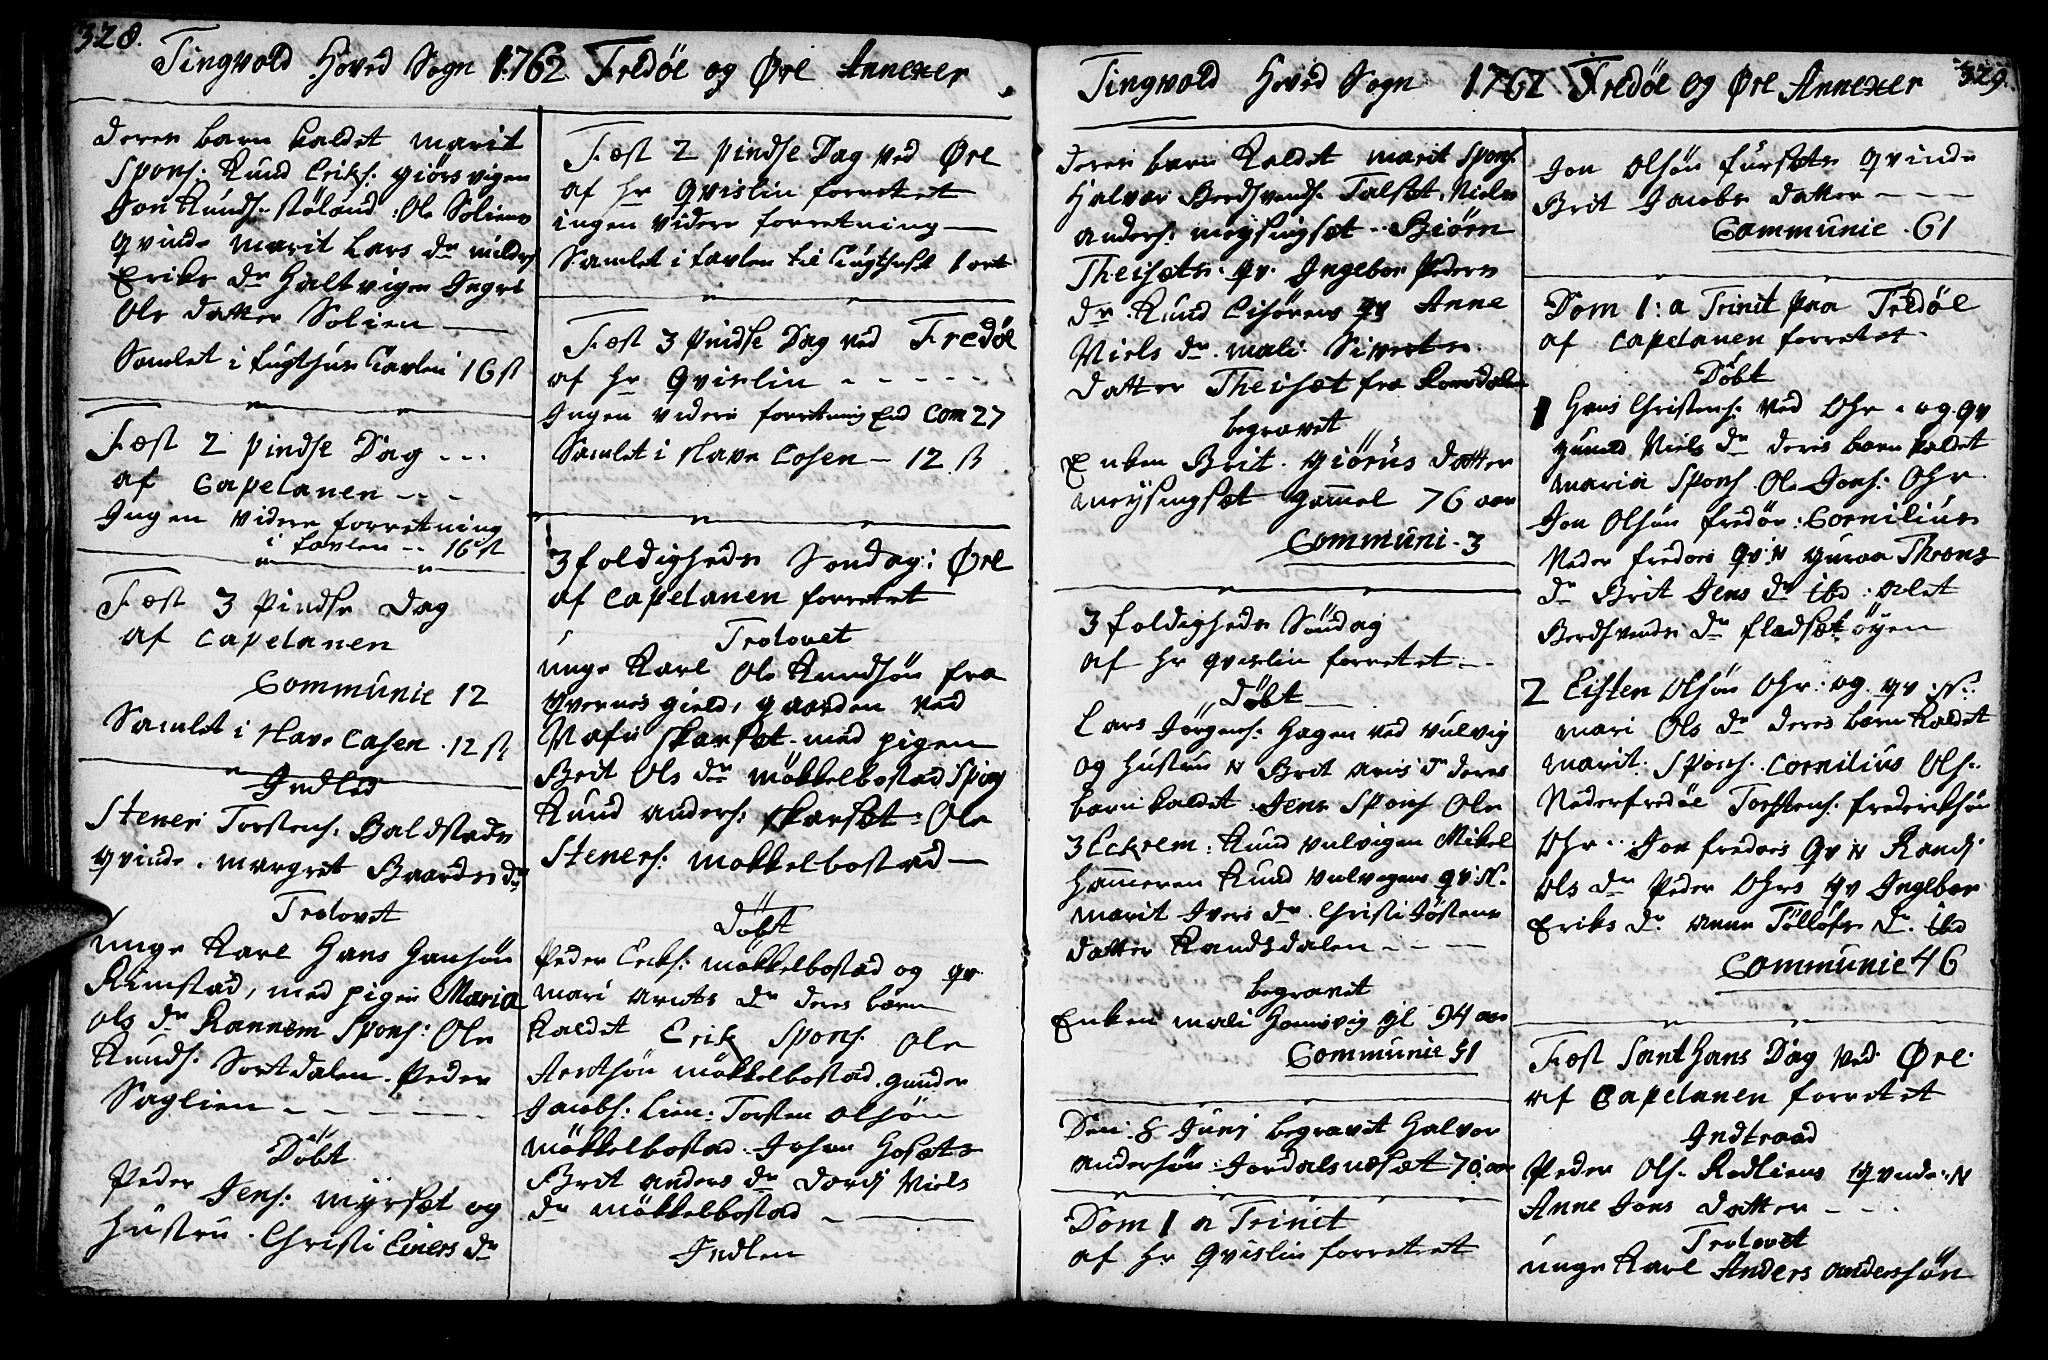 328.
Tingvold Hoved Sogn 1762. Fredöe og Øre Annexer
deres barn kaldet marit
Spons: Knud Eriks: giörsvigen
Jon Knuds: stöland: Ole Soliens
qvinde marit Lars dr mildrj
Eriks dr Haltvigen Ingri
Ols datter Solien
Samlet i tugthus tavlen 16 ß
Fæst 2 pindse Dag
af Capelanen
Ingen videre forretning
i tavlen 16 ß
Fæst 3 Pindse Dag
af Capelanen
Communic 12
Samlet i Have Casen 12 ß
Indled
Stener Torstens: Baldstads
qvinde margret Baards dr
Trolovet
unge Karl Hans Hansön
Rimstad, med pigen Maria
ols dr Rannem Spons: Ole
Knuds: Sortdalen. Peder
Saglien
Döbt
Peder Jens: myrsæt og
Hustru Christi Einers dr
Fæst 2 pindse Dag ved Øre
af hr qvislin forrettet
ingen videre forretning
Samlet i tavlen til tugthuset 1 ort
Fæst 3 Pindse Dag ved Fredöe
af hr qvislin
Ingen videre forretning End Com 27
Samlet i Have Cosen 12 ß
3foldigheds Söndag i Øre
af Capelanen forrettet
Trolovet
unge Karl Ole Knudsön fra
qvernes gield, gaarden ved
Nafn Skarsæt med pigen
Brit Ols dr mökkelbostad Spons
Knud anders: Skarsæt: Ole
Steners: mokkelbostad
Döbt
Peder Eriks: mökkelbostad og qv
mari arnts dr deres barn
kaldet Erik Spons: Ole
Arntsön mökkelbostad. gunder
Jacobs: Lien: Torsten olsön
mökkelbostad Johan Hosæts
Brit anders dr Dordj Niels
dr mökkelbostad
Indlen
329.
Tingvold Hoved Sogn 1762 Fredöe og Øre Annexer
deres barn kaldet marit Spons
Halvor Berdsvends: Talset. Niels
anders: meysingsæt Biörn
Theisæts. qv. Ingebor Peders
dr Knud Eisörens qv Anne
Niels dr. mali Siverts
datter Theisæt fra Romsdalen
begravet
Enken Brit giörüs datter
meysingsæt gammel 76 aar
Communi 3
3foldigheds Söndag
af hr qvislin forrettet
Döbt
Lars Jörgens: Hagen ved vulvig
og Hustru N Brit aris dr deres
barn kaldet Jens Spons Ole
Eckrem: Knud vulvigen Mikel
Hammeren Knud vulvigens qv: N.
marit Ivers dr. Christi Jöstens
datter Randsdalen
begravet
Enken mali Hamsvig gl 94 aar
Communic 51
Den 8 Junj begravet Halvor
andersön Jordalsnesæt 70: aar
Dom 1 a Trinit
af hr qvislin forrettet
Jon Olsön fursæts qvinde
Brit Jacobs datter
Communic 61
Dom 1: a Trinit paa Fredöe
af Capelanen forrettet
Döbt
1 Hans Christens: ved Ohr og qv
gunild Niels dr deres barn kaldet
maria Spons. Ole Jons: Ohr
Jon Olsön fredöe: Cornilius
Neder fredöes qv: N guroa Throns
dr Brit Jens dr ibd: alet
Berdsvends dr fladsætöyen
2 Eisten Olsön Ohr: og qv: N:
mari Ols dr deres barn kaldet
marit. Spons. Cornilius Ols:
Nederfredöe Torstens: frederiksön
Ohr Jon fredöes qv: N Randj
ols dr Peder Ohrs qv Ingebor
Eriks dr anne Tölløfs dr. ibd
Communic 46
Fæst Sant Hans Dag ved Øre
af Capelanen forrettet
Indtraad
Peder Ols: Rodliens qvinde: N
Anne Jons datter
Trolovet
unge Karl Anders andersön